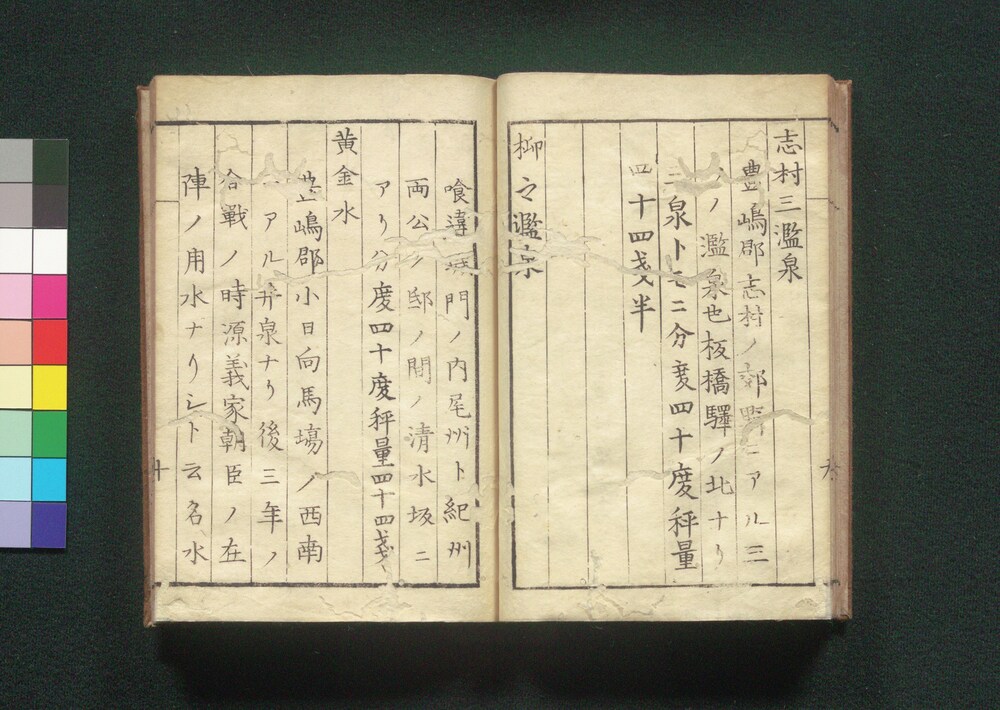 志村三濫泉
豊嶋郡志村ノ郊野ニアル三
ノ濫泉也板橋驛ノ北ナリ
三泉トモニ分度四十度秤量
四十四戔半
柳之濫泉
喰違城門ノ内尾州ト紀州
両公ノ邸ノ間ノ清水坂ニ
アリ分度四十度秤量四十四戔
黄金水
豊嶋郡小日向馬塲ノ西南
ニアル井泉ナリ後三年ノ
合戦ノ時源義家朝臣ノ在
陣ノ用水ナリシト云名水
十